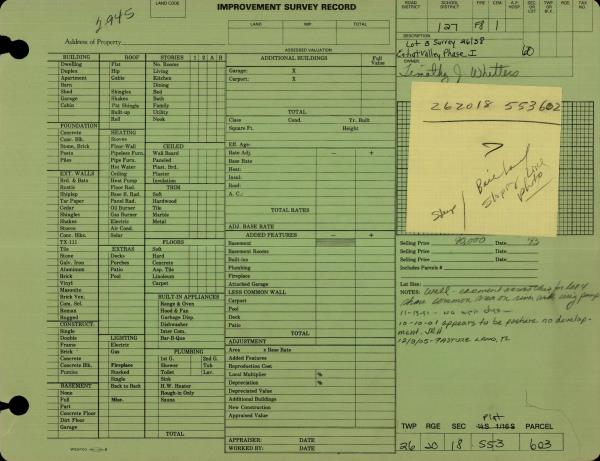 2945
LAND CODE
IMPROVEMENT SURVEY RECORD
ROAD DISTRICT
SCHOOL DISTRICT
FIRE
CEM.
A.P. HOSP.
SEC OR LOT
TWP OR BLK
RGE.
TAX NO.
127 F8 1
LAND
IMP.
TOTAL
DESCRIPTION
Lot B Survey 26/38
Echo Valley Phase I
60
Address of Property
ASSESSED VALUATION
HOLDER
Timothy J. Whitters
BUILDING
ROOF
STORIES 1 2 A B
ADDITIONAL BUILDINGS
Full Value
Dwelling Flat No. Rooms
Garage: X
Duplex Hip Living
Carport: X
Apartment Gable Kitchen
Barn Dining
Shed Shingles Bed
Garage Shakes Bath
Cabin Pat Shingle Family
Built-up Utility
Roll Nook
TOTAL
Class Cond. Yr. Built
Square Ft. Height
262018 553602
Bare Land
Sloping
photo
FOUNDATION
HEATING
Concrete Stoves
Conc. Blk. Floor-Wall CEILED
Stone, Brick Pipeless Furn. Wall Board
Posts Pipe Furn. Paneled
Piles Hot Water Plast. Brd.
Eff. Age:
Rate Adj. — +
Base Rate
Heat:
Insul:
Roof:
A. C.:
EXT. WALLS Ceiling Plaster
Brd. & Bats Heat Pump Insulation
Rustic Floor Rad. TRIM
Shiplap Base B. Rad. Soft
Tar Paper Panel Rad. Hardwood
Cedar Oil Burner Tile
Shingles Gas Burner Marble
Shakes Electric Metal
Stucco Air Cond.
Conc. Blks. Solar
TX-111 FLOORS
Tile EXTRAS Soft
Stone Decks Hard
Galv. Iron Porches Concrete
Aluminum Patio Asp. Tile
Brick Pool Linoleum
Vinyl Carpet
Masonite
TOTAL RATES
ADJ. BASE RATE
ADDED FEATURES — +
Basement
Basement Rooms
Built-ins
Plumbing
Fireplace
Attached Garage
LESS COMMON WALL
Carport
Pool
Deck
Patio
TOTAL
Selling Price 90,000 Date 93
Selling Price Date
Includes Parcels #
Lot Size:
NOTES: Well - easement
10-10-01 appears to be pasture no development. JRH
12/8/05-PASTURE LAND, TL
Brick Ven. BUILT-IN APPLIANCES
Com. Sel. Range & Oven
Roman Hood & Fan
Rugged Garbage Disp.
CONSTRUCT. Dishwasher
Single Inter Com.
Double LIGHTING Bar-B-Que
Frame Electric
Brick Gas PLUMBING
Concrete 1st G. 2nd G.
Concrete Blk. Fireplace Shower Tub
Pumice Stacked Toilet Lav.
Single Sink
BASEMENT Back to Back H.W. Heater
None Rough-in Only
Full Misc. Sauna
Part
Concrete Floor
Dirt Floor
Garage
TOTAL
ADJUSTMENT
Area x Base Rate
Added Features
Reproduction Cost
Local Multiplier %
Depreciation %
Depreciated Value
Additional Buildings
New Construction
Appraised Value
APPRAISER: DATE
WORKED BY: DATE
Plat
TWP RGE SEC ¼S 1/16S PARCEL
26 20 18 553 603